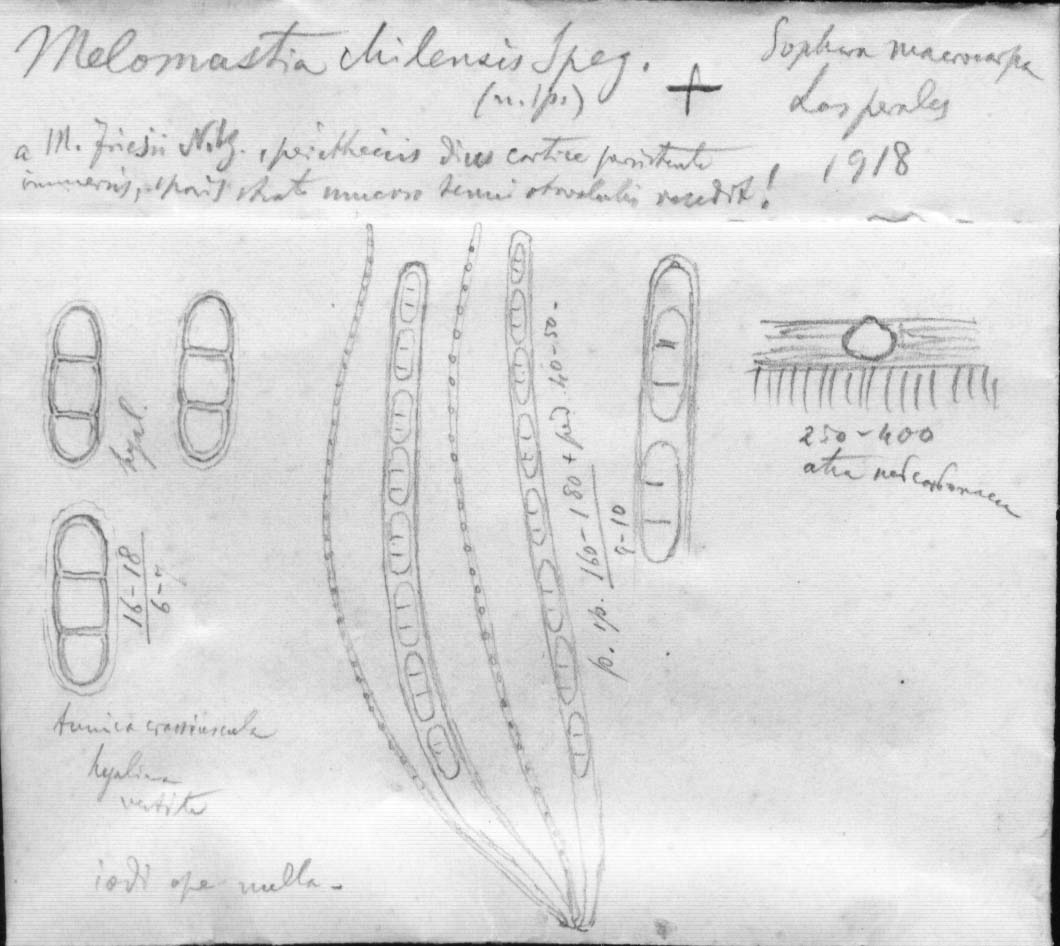 Melomastia chilensis Speg.
(n. sp.)
+
Sophora macrocarpa
Los perales
1918
a M. Friesii Nits., peritheciis diu cortice persistente
immersis, sporis strato mucoso tenui obvolutis recedit!
hyal.
16-18
6-7
tunica crassiuscula
hyalina
vestita
iodi ope nulla-
p. sp. 160-180 + ped. 40-50-
9-10
250-400
atra